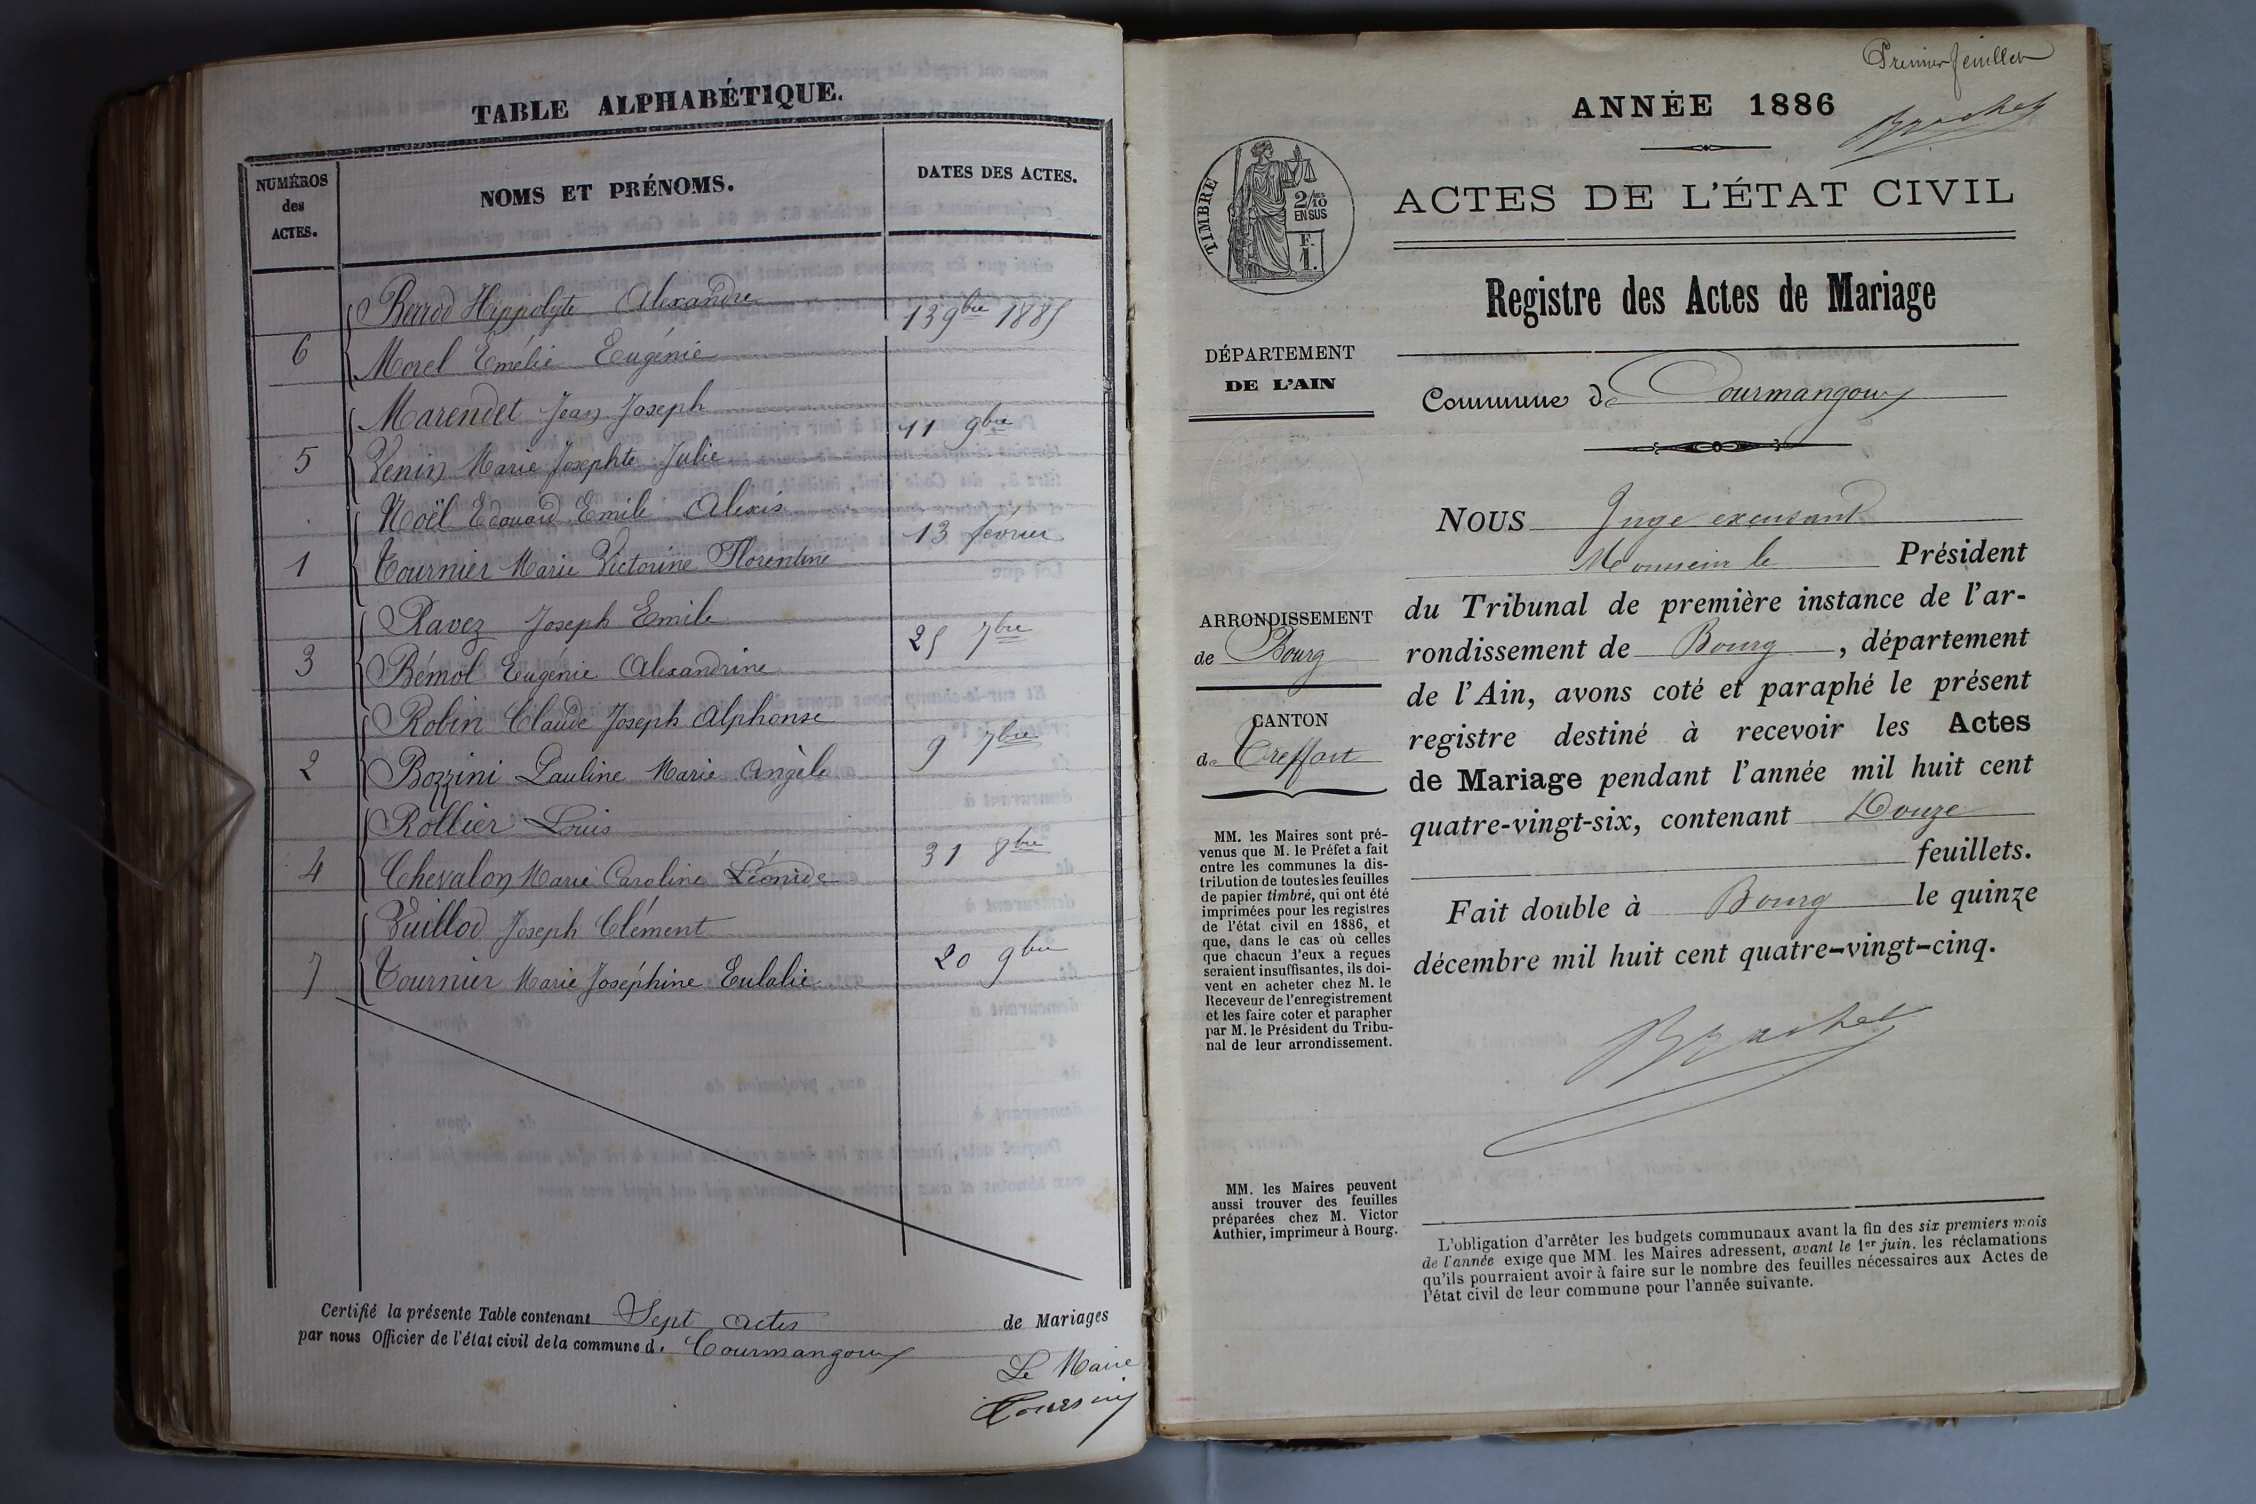 TABLE ALPHABÉTIQUE.
NUMÉROS
des
ACTES.
NOMS ET PRÉNOMS.
DATES DES ACTES.
Berrod Hippolyte Alexandre
13 9bre 1885
6
Morel Emélie Eugénie
Marendet Jean Joseph
11 9bre
5
Venin Marie Josephte Julie
Noël Edouard Emile Alexis
13 février
1
Tournier Marie Victorine Florentine
Ravez Joseph Emile
25 7bre
3
Bémol Eugénie Alexandrine
Robin Claude Joseph Alphonse
9 7bre
2
Bozzini Pauline Marie Angèle
Rollier Louis
31 8bre
4
Chevalon Marie Caroline Léonide
Vuillod Joseph Clément
20 9bre
7
Tournier Marie Joséphine Eulalie
Certifié la présente Table contenant Sept actes de Mariages
par nous Officier de l'état civil de la commune d. Courmangoux
Le Maire
Premier feuillet
ANNÉE 1886
Brachet
ACTES DE L'ÉTAT CIVIL
TIMBRE
2/10
EN SUS
F.
1.
Registre des Actes de Mariage
DÉPARTEMENT
DE L'AIN
Commune de Courmangoux
NOUS Juge excusant
Monsieur le Président
du Tribunal de première instance de l'ar-
rondissement de Bourg, département
de l'Ain, avons coté et paraphé le présent
registre destiné à recevoir les Actes
de Mariage pendant l'année mil huit cent
quatre-vingt-six, contenant Douze
feuillets.
Fait double à Bourg le quinze
décembre mil huit cent quatre-vingt-cinq.
Brachet
ARRONDISSEMENT
de Bourg
CANTON
de Treffort
MM. les Maires sont pré-
venus que M. le Préfet a fait
entre les communes la dis-
tribution de toutes les feuilles
de papier timbré, qui ont été
imprimées pour les registres
de l'état civil en 1886, et
que, dans le cas où celles
que chacun d'eux a reçues
seraient insuffisantes, ils doi-
vent en acheter chez M. le
Receveur de l'enregistrement
et les faire coter et parapher
par M. le Président du Tribu-
nal de leur arrondissement.
MM. les Maires peuvent
aussi trouver des feuilles
préparées chez M. Victor
Authier, imprimeur à Bourg.
L'obligation d'arrêter les budgets communaux avant la fin des six premiers mois
de l'année exige que MM. les Maires adressent, avant le 1er juin, les réclamations
qu'ils pourraient avoir à faire sur le nombre des feuilles nécessaires aux Actes de
l'état civil de leur commune pour l'année suivante.